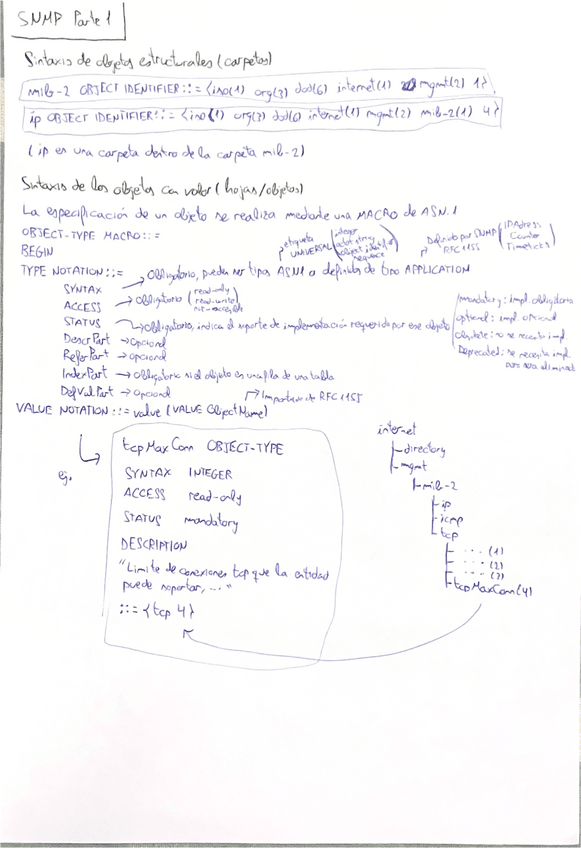 SNMP Parte 1
Sintaxis de objetos estructurales (carpetas)
mib-2 OBJECT IDENTIFIER::= {iso(1) org(3) dod(6) internet(1) mgmt(2) 1}
ip OBJECT IDENTIFIER::= {iso(1) org(3) dod(6) internet(1) mgmt(2) mib-2(1) 4}
(ip es una carpeta dentro de la carpeta mib-2)
Sintaxis de los objetos con valor (hojas/objetos)
La especificación de un objeto se realiza mediante una MACRO de ASN.1
OBJECT-TYPE MACRO::=
BEGIN
etiqueta UNIVERSAL
integer
octet string
object identifier
sequence
Definido por SNMP
RFC 1155
IPAdress
Counter
Timeticks
TYPE NOTATION::= Obligatorio, pueden ser tipos ASN1 o definidos de tipo APPLICATION
SYNTAX
ACCESS → Obligatorio
read-only
read-write
not-accesible
STATUS → Obligatorio, indica el soporte de implementación requerido por ese objeto
mandatory: impl. obligatoria
optional: impl. opcional
obsolete: no se necesita impl.
Deprecated: se necesita impl.
pero será eliminado
DescrPart → opcional
ReferPart → opcional
IndexPart → obligatorio si el objeto es una fila de una tabla
DefValPart → opcional
Importado de RFC 1155
VALUE NOTATION::= value (VALUE ObjectName)
ej.
tcpMaxConn OBJECT-TYPE
SYNTAX INTEGER
ACCESS read-only
STATUS mandatory
DESCRIPTION
"Limite de conexiones tcp que la entidad
puede soportar, ..."
::= {tcp 4}
internet
directory
mgmt
mib-2
ip
icmp
tcp
.... (1)
.... (2)
.... (3)
tcpMaxConn(4)